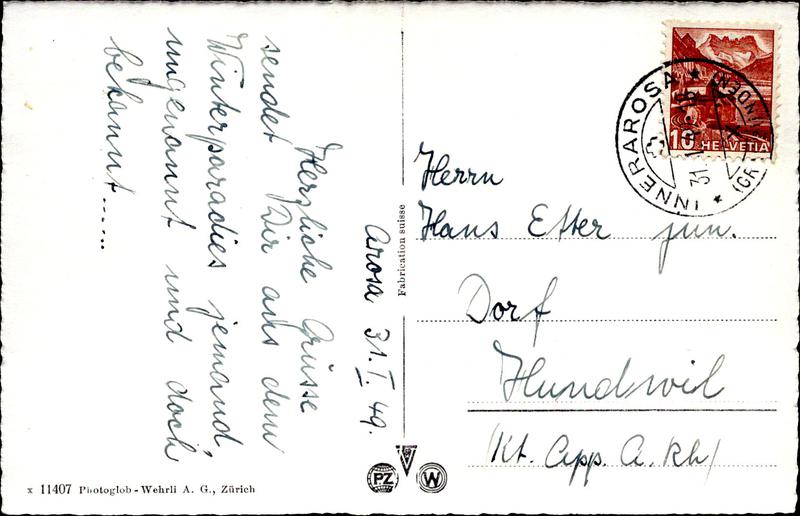 Arosa 31. I. 49.
Herzliche Grüsse
sendet Dir aus dem
Winterparadies jemand,
ungenannt und doch
bekannt......
Fabrication suisse
10 HELVETIA
INNERAROSA
Herrn
Hans Etter jun.
Dorf
Hundwil
(Kt. App. A. Rh)
PZ W
x 11407 Photoglob-Wehrli A. G., Zürich